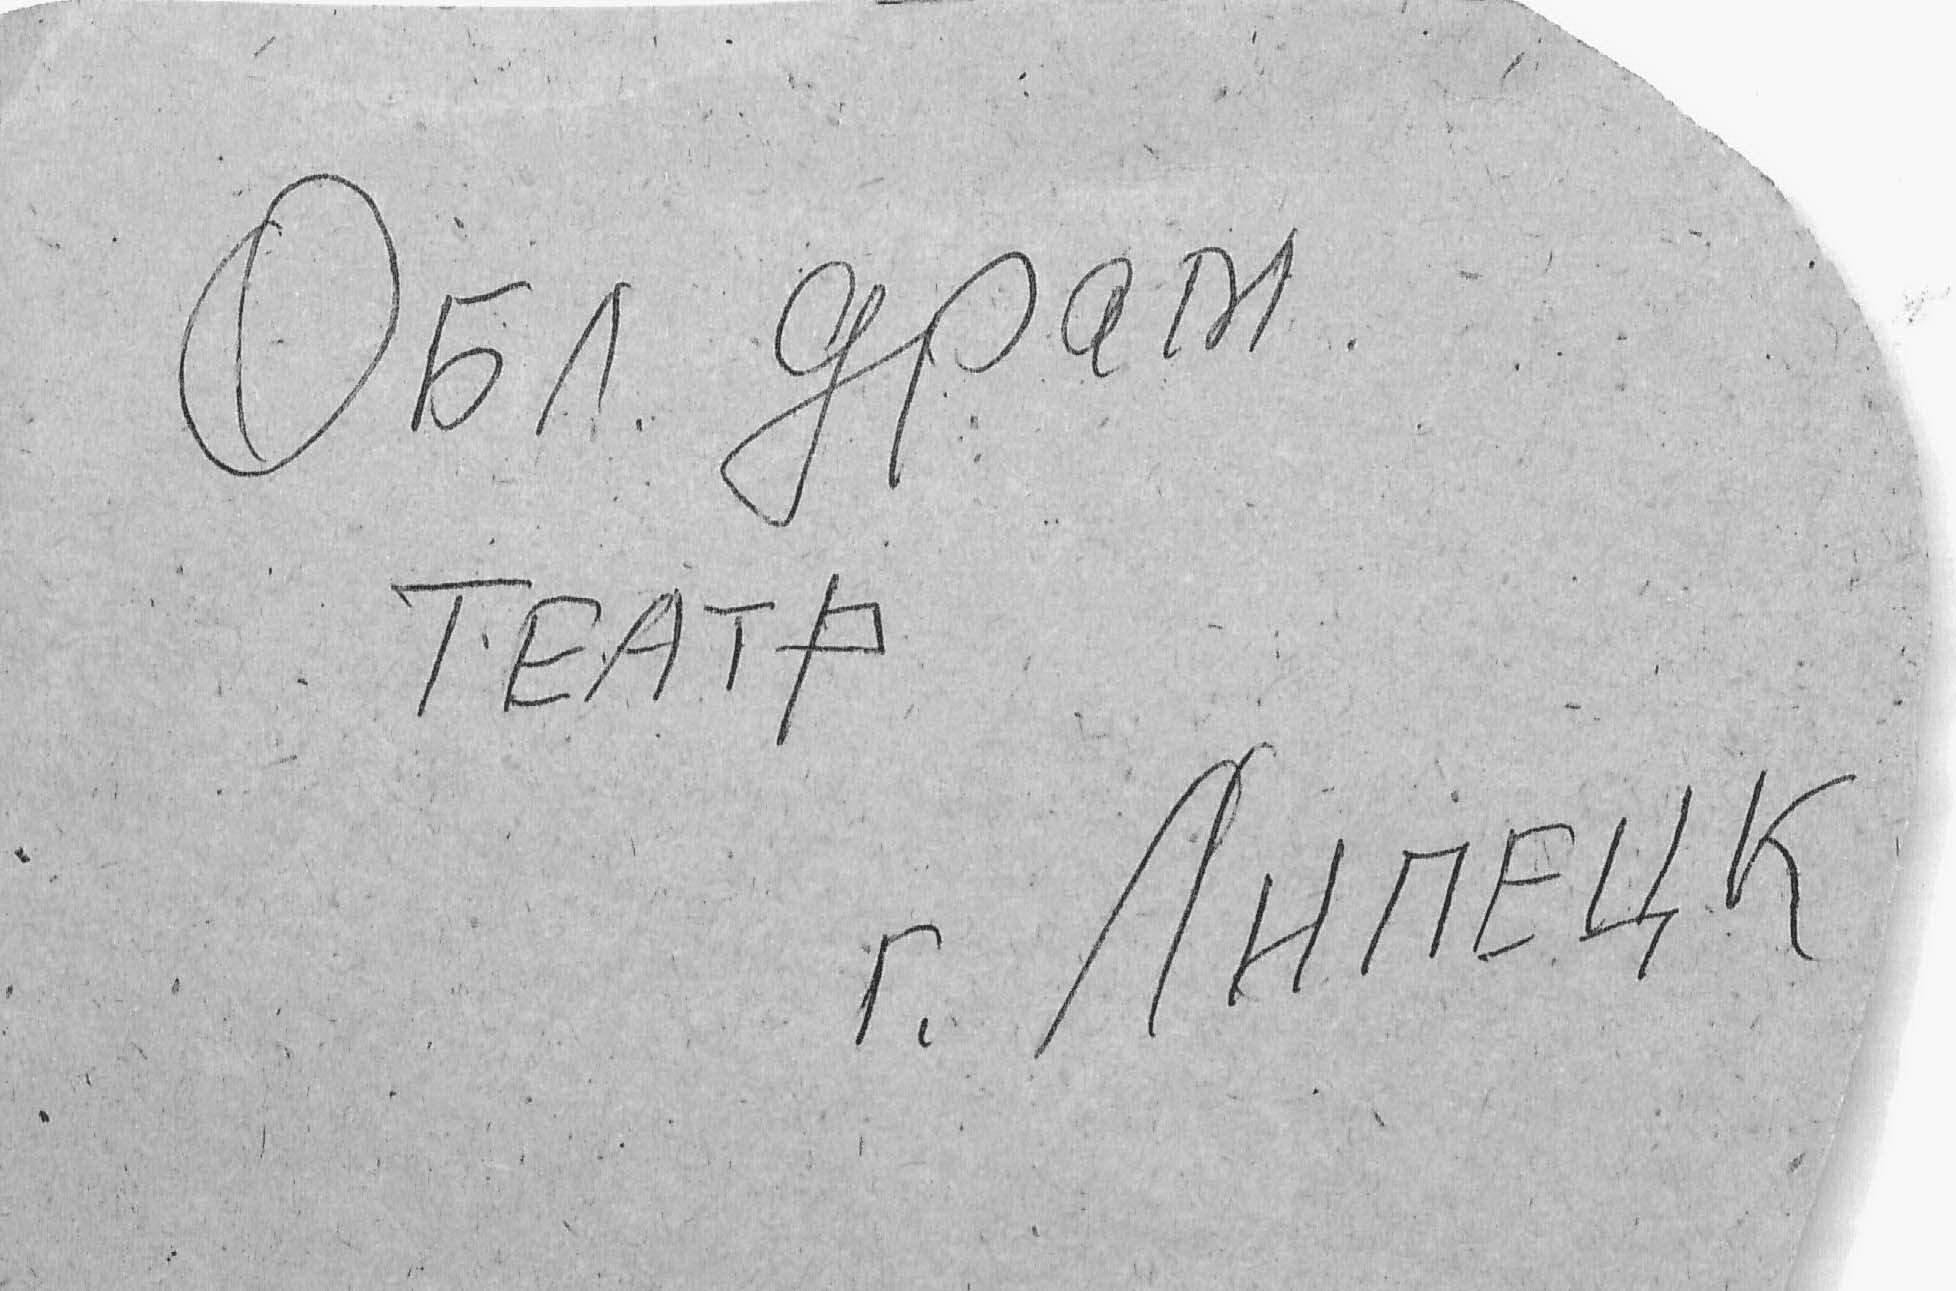 Обл. драм.
ТЕАТР
г. Липецк